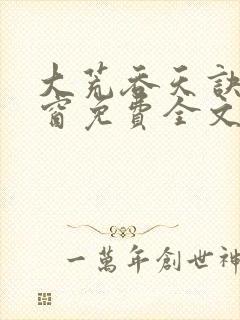 大荒吞天訣
窗免費全文
一萬年創世神